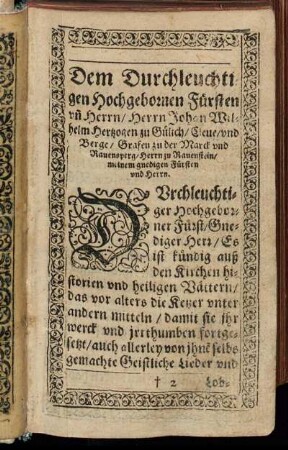 Dem Durchleuchti
gen Hochgebornen Fürsten
vñ Herrn/ Herrn Johan Wil-
helm Hertzogen zu Gülich/ Cleue/ vnd
Berge/ Grafen zu der Marck vnd
Rauensperg/ Herrn zu Rauenstein/
meinem gnedigen Fürsten
vnd Herrn.
DVrchleuchti-
ger Hochgebor-
ner Fürst/ Gne-
diger Herr/ Es
ist kündig auß
den Kirchen hi-
storien vnd heiligen Vättern/
das vor alters die Ketzer vnter
andern mitteln / damit sie jhr
werck vnd jrrthumben fortge-
setzt/ auch allerley von jhnẽ selbs
gemachte Geistliche Lieder vnd
† 2 Lob-